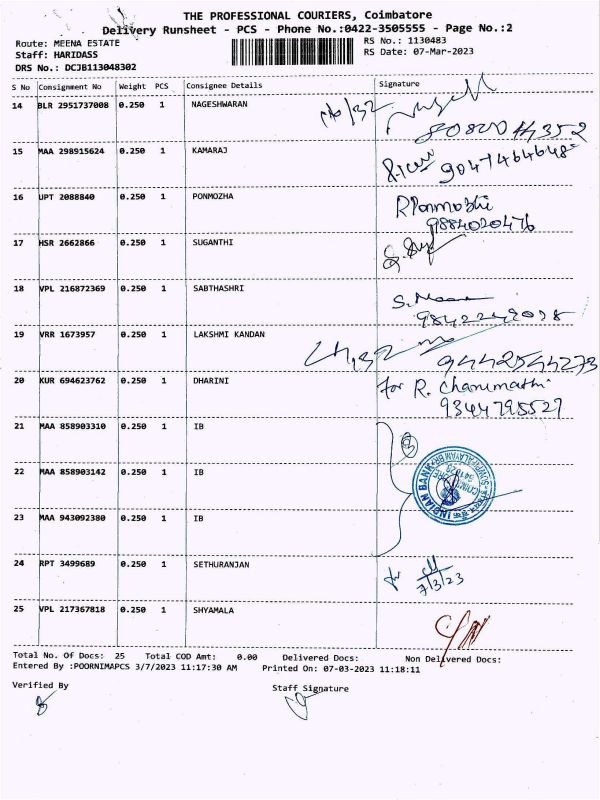 THE PROFESSIONAL COURIERS, Coimbatore
Delivery Runsheet - PCS - Phone No.:0422-3505555 - Page No.:2
Route: MEENA ESTATE RS No.: 1130483
Staff: HARIDASS RS Date: 07-Mar-2023
DRS No.: DCJB113048302
S No Consignment No Weight PCS Consignee Details Signature
14 BLR 2951737008 0.250 1 NAGESHWARAN
15 MAA 298915624 0.250 1 KAMARAJ
9047464648
16 UPT 2088840 0.250 1 PONMOZHA R Ponmozhi
9884020476
17 HSR 2662866 0.250 1 SUGANTHI
18 VPL 216872369 0.250 1 SABTHASHRI
19 VRR 1673957 0.250 1 LAKSHMI KANDAN
9442544273
20 KUR 694623762 0.250 1 DHARINI for R. Chanumathi
9344795527
21 MAA 858903310 0.250 1 IB
22 MAA 858903142 0.250 1 IB
INDIAN BANK
23 MAA 943092380 0.250 1 IB
24 RPT 3499689 0.250 1 SETHURANJAN for
7/3/23
25 VPL 217367818 0.250 1 SHYAMALA
Total No. Of Docs: 25 Total COD Amt: 0.00 Delivered Docs: Non Delivered Docs:
Entered By :POORNIMAPCS 3/7/2023 11:17:30 AM Printed On: 07-03-2023 11:18:11
Verified By Staff Signature